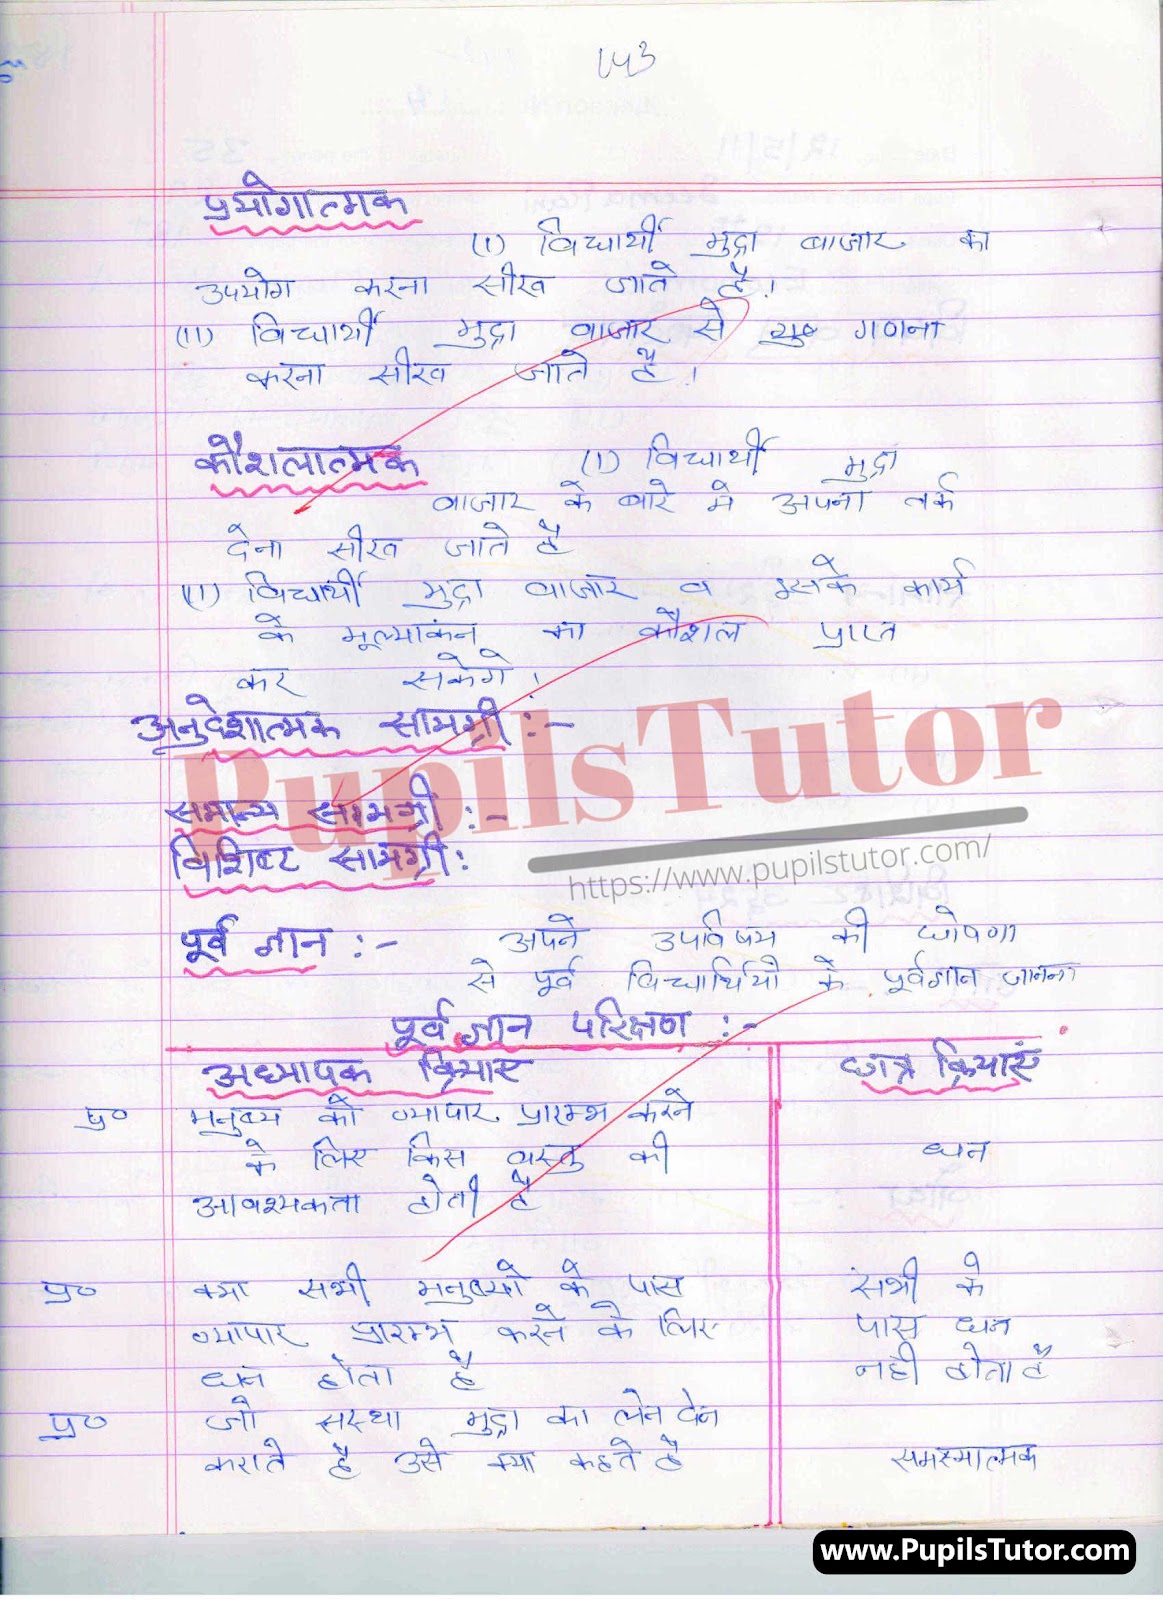 143
प्रयोगात्मक
(I) विद्यार्थी मुद्रा बाजार का
उपयोग करना सीख जाते है।
(II) विद्यार्थी मुद्रा बाजार से गणना
करना सीख जाते है।
कौशलात्मक (I) विद्यार्थी मुद्रा
बाजार के बारे मे अपना तर्क
देना सीख जाते है
(II) विद्यार्थी मुद्रा बाजार व इसके कार्य
के मूल्यांकन का कौशल प्राप्त
कर सकेगे।
अनुदेशात्मक सामग्री :-
समान्य सामग्री :-
विशिष्ट सामग्री:
PupilsTutor
https://www.pupilstutor.com/
पूर्व ज्ञान :- अपने उपविषय की घोषणा
से पूर्व विद्यार्थियो के पूर्वज्ञान जानना
पूर्व ज्ञान परिक्षण :-
अध्यापक क्रियाए छात्र क्रियाएं
प्र० मनुष्य को व्यापार प्रारम्भ करने
के लिए किस वस्तु की धन
आवश्यकता होती है
प्र० क्या सभी मनुष्यो के पास सभी के
व्यापार प्रारम्भ करने के लिए पास धन
धन होता है नही होता है
प्र० जो संस्था मुद्रा का लेन देन
कराते है उसे क्या कहते है समस्यात्मक
www.PupilsTutor.com